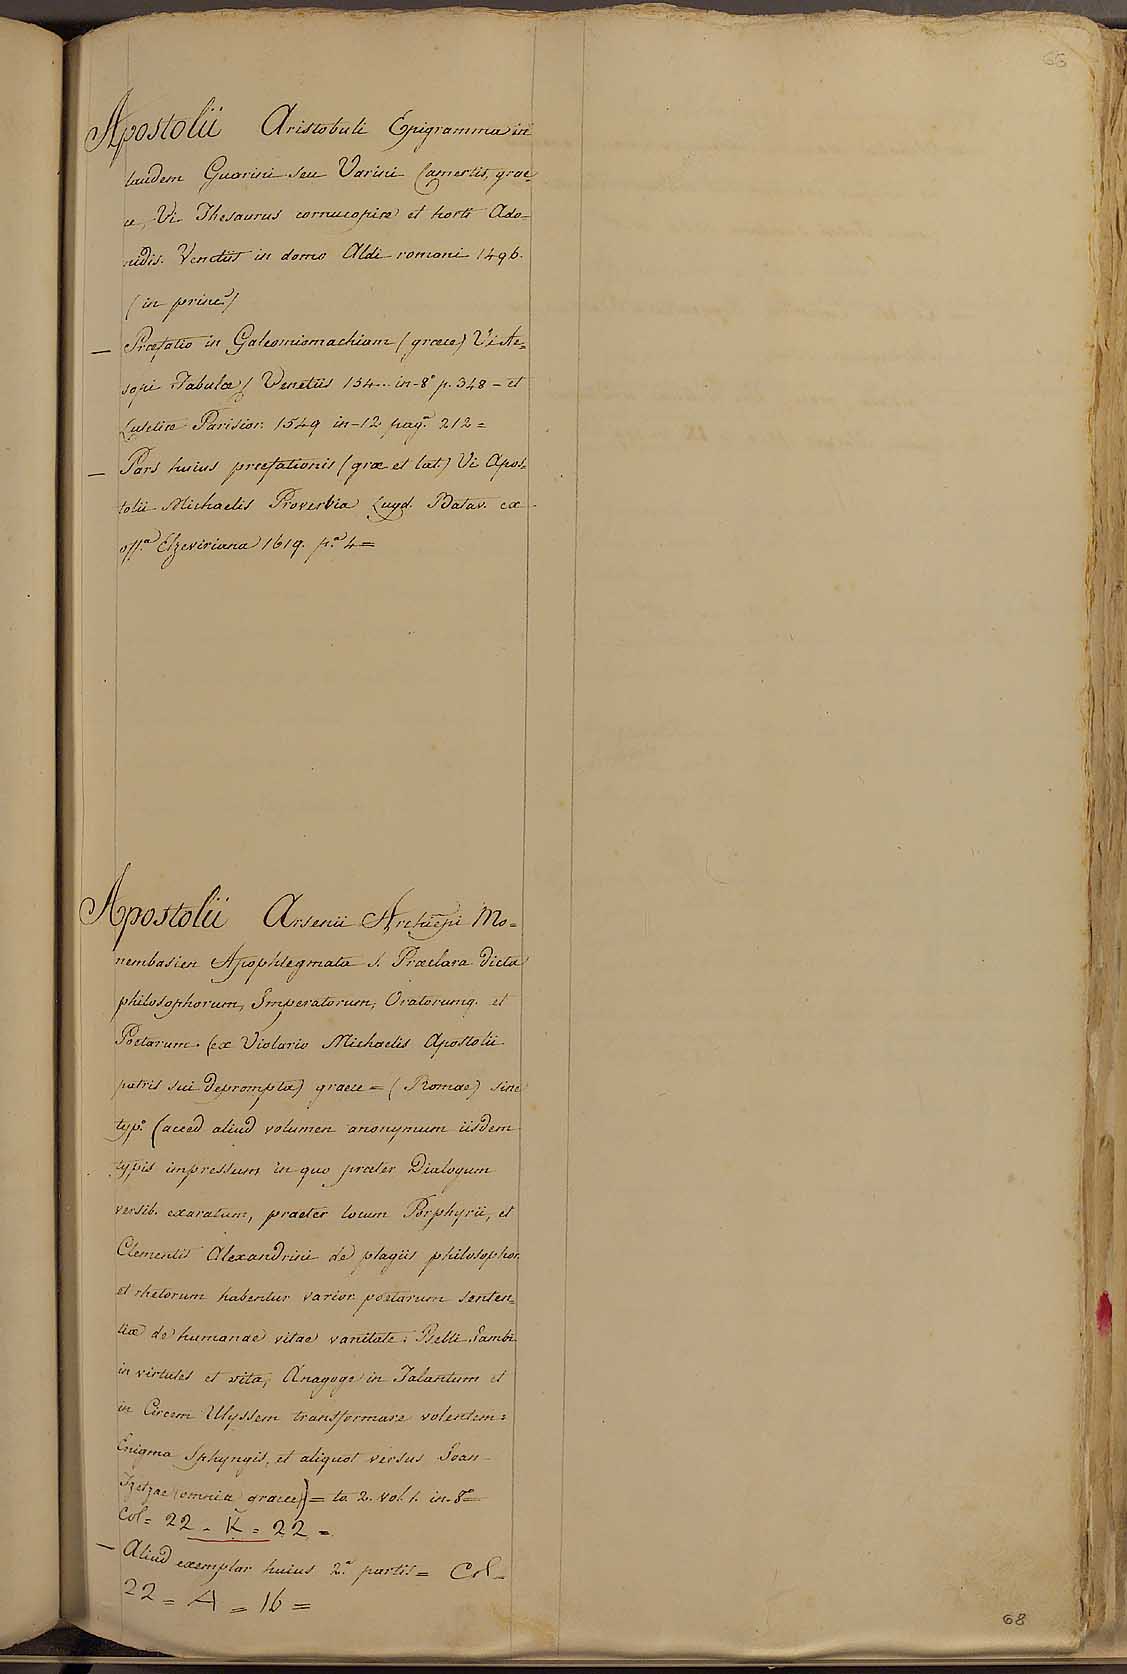 66
Apostolii Aristobuli Epigramma in
laudem Guarini seu Varini Camertis, grae-
ce, Vi. Thesaurus cornucopiae et horti Ado-
nidis. Venetiis in domo Aldi romani 1496.
(in princ.)
— Praefatio in Galeomiomachiam (graece) Vi Ae-
sopi Fabulae / Venetiis 154... in-8° p. 348 - et
Lutetiae Parisior. 1549 in-12 pag. 212 =
— Pars huius praefationis (grae et lat.) Vi Apos-
tolii Michaelis Proverbia Lugd. Batav. ex
off.a Elzeviriana 1619. p.a 4 =
Apostolii Arsenii Archiepi Mo=
nembasien Apophtegmata s. Praeclara dicta
philosophorum, Imperatorum, Oratorumq. et
Poetarum. (ex Violario Michaelis Apostolii
patris sui deprompta) graece = (Romae) sine
typ.° (acced aliud volumen anonymum iisdem
typis impressum in quo praeter Dialogum
versib. exaratum, praeter locum Porphyrii, et
Clementis Alexandrini de plagiis philosophor.
et rhetorum habentur varior. poetarum senten=
tiae de humanae vitae vanitate: Pselli Iambi
in virtutes et vita; Anagoge in Talantum et
in Circem Ulyssem transformare volentem =
Enigma Sphyngis, et aliquot versus Ioan
Tzetzae (omnia graece)) = to. 2. vol. 1. in-8° =
Col = 22 - K = 22 =
— Aliud exemplar huius 2.a partis = Col =
22 = A = 16 =
68